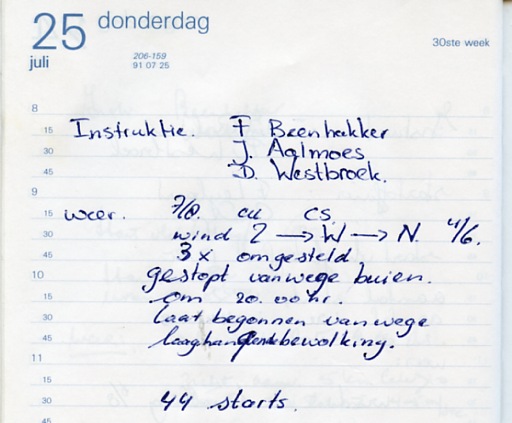 25 donderdag
juli
206-159
91 07 25
30ste week
8
15 Instruktie. F Beenhakker
30 J. Aalmoes
45 D. Westbroek.
9
15 weer. 7/8. cu cs.
30 wind Z → W → N. 4/6.
45 3x omgesteld
10 gestopt vanwege buien.
15 om 20.00 hr.
30 laat begonnen vanwege
45 laaghangende bewolking.
11
15
30 44 starts.
45